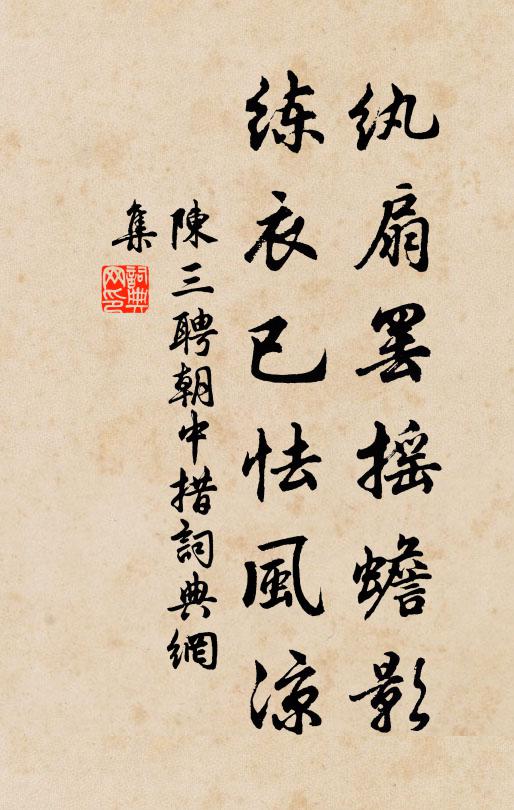 纨扇罢摇蟾影
练衣已怯風凉
陳三聘朝中措詞典網
集
詞典网印